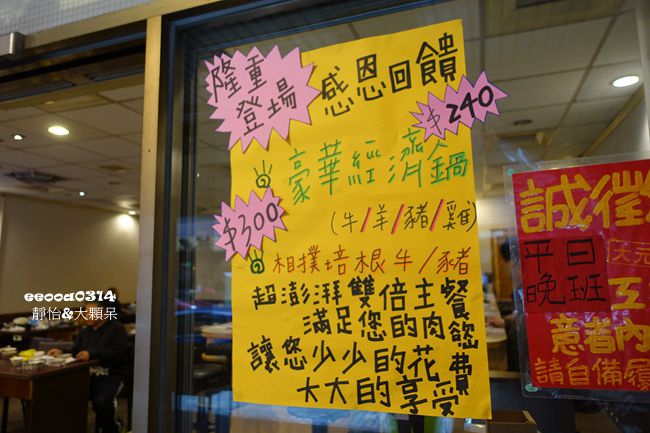 隆重
登場
感恩回饋
$240
豪華經濟鍋
(牛/羊/豬/雞)
$300
相撲培根牛/豬
超澎湃雙倍主餐
滿足您的肉慾
讓您少少的花費
大大的享受
誠徵
平日
晚班
意者內
請自備履
eeooa0314
靜怡&大顆呆